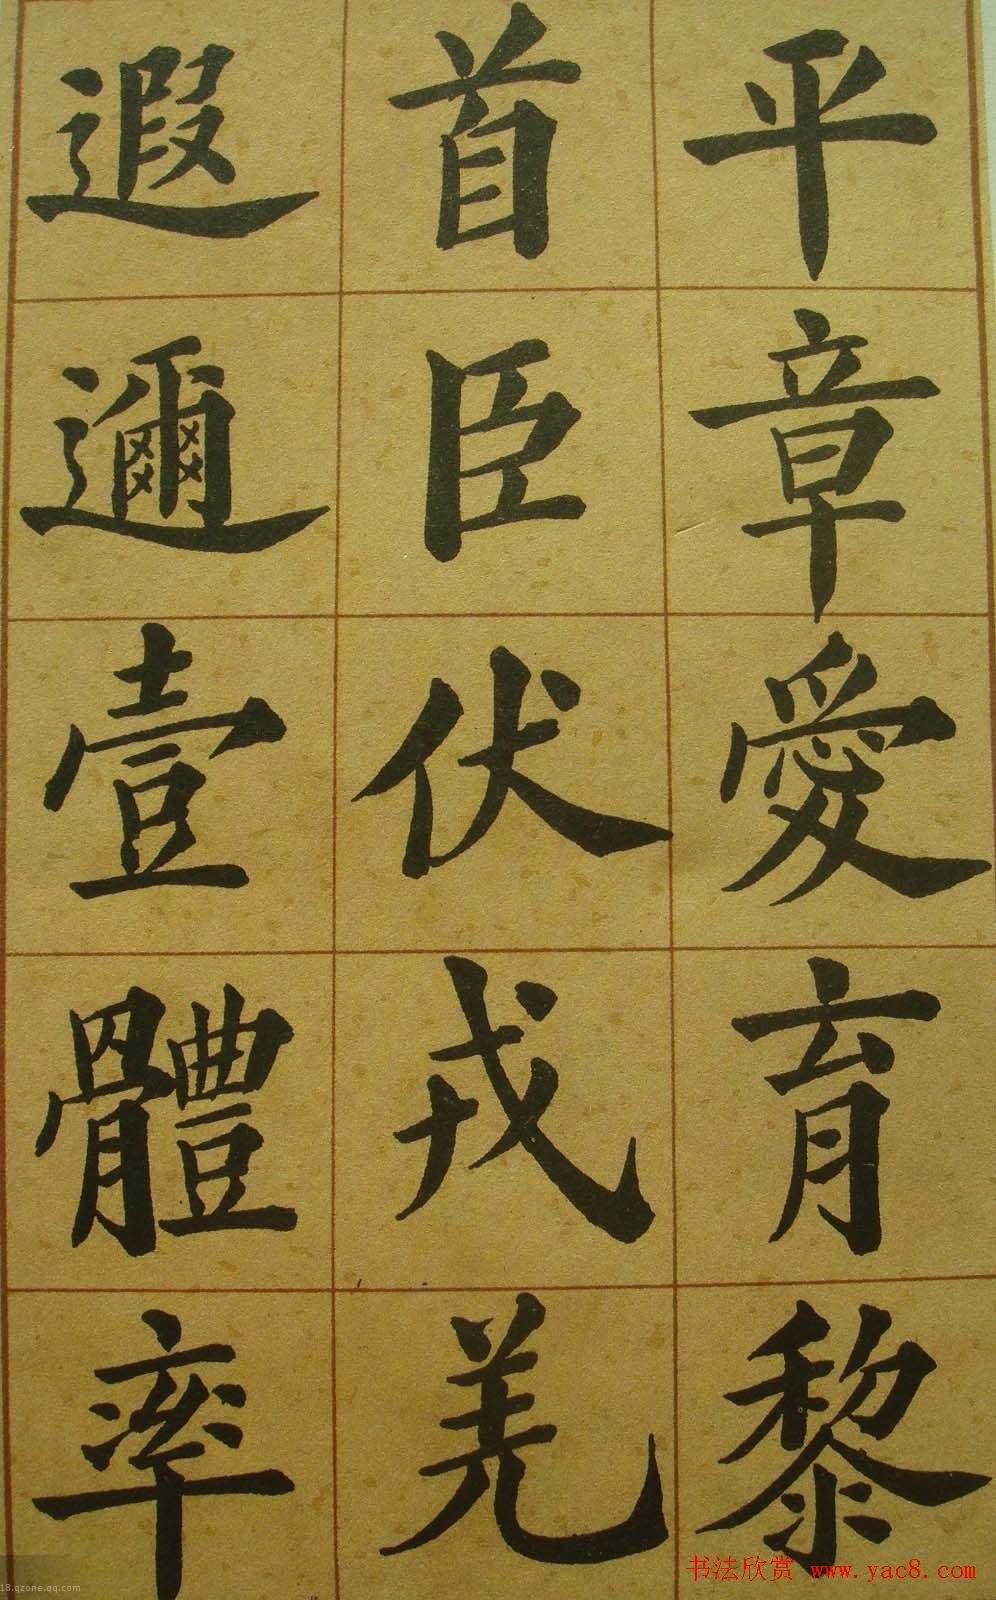 平章愛育黎
首臣伏戎羌
遐邇壹體率
书法欣赏 www.yac8.com
18.qzone.qq.com